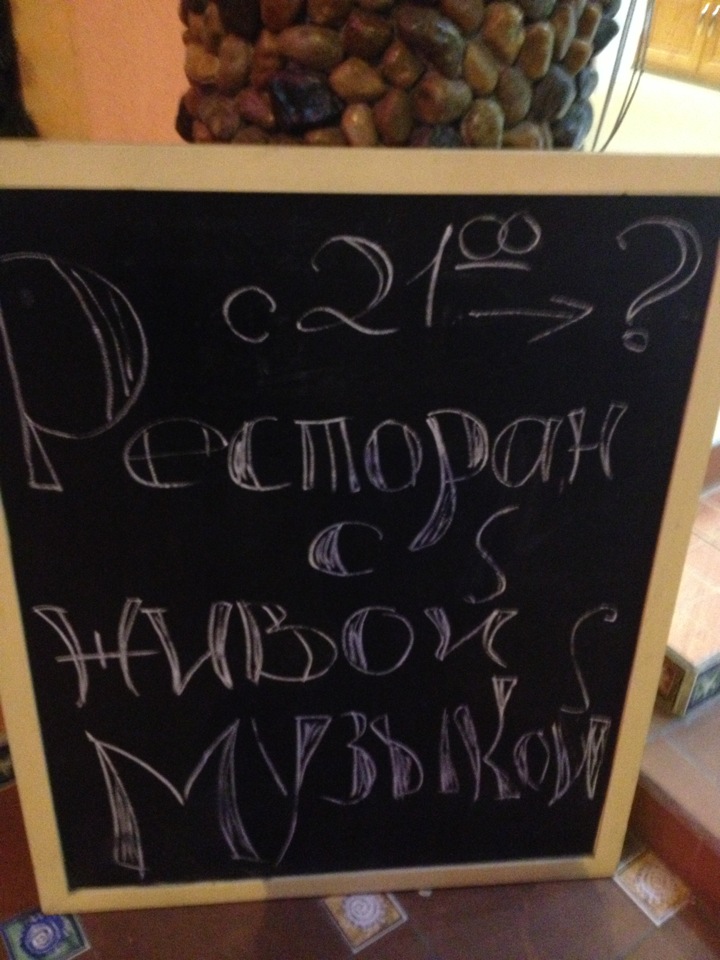 с 21⁰⁰ → ?
Ресторан
с
живой
Музыкой